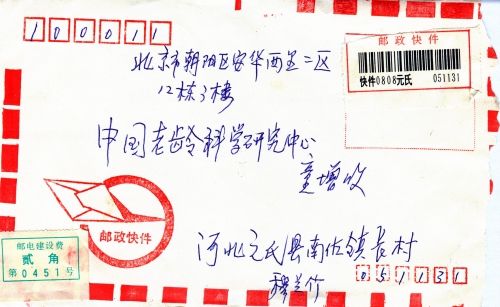 100011
邮政快件
快件0808元氏 051131
北京市朝阳区安华西里二区
12栋3楼
中国老龄科学研究中心
童增收
邮政快件
邮电建设费
贰角
第0451号
河北元氏县南佐镇长村
051131